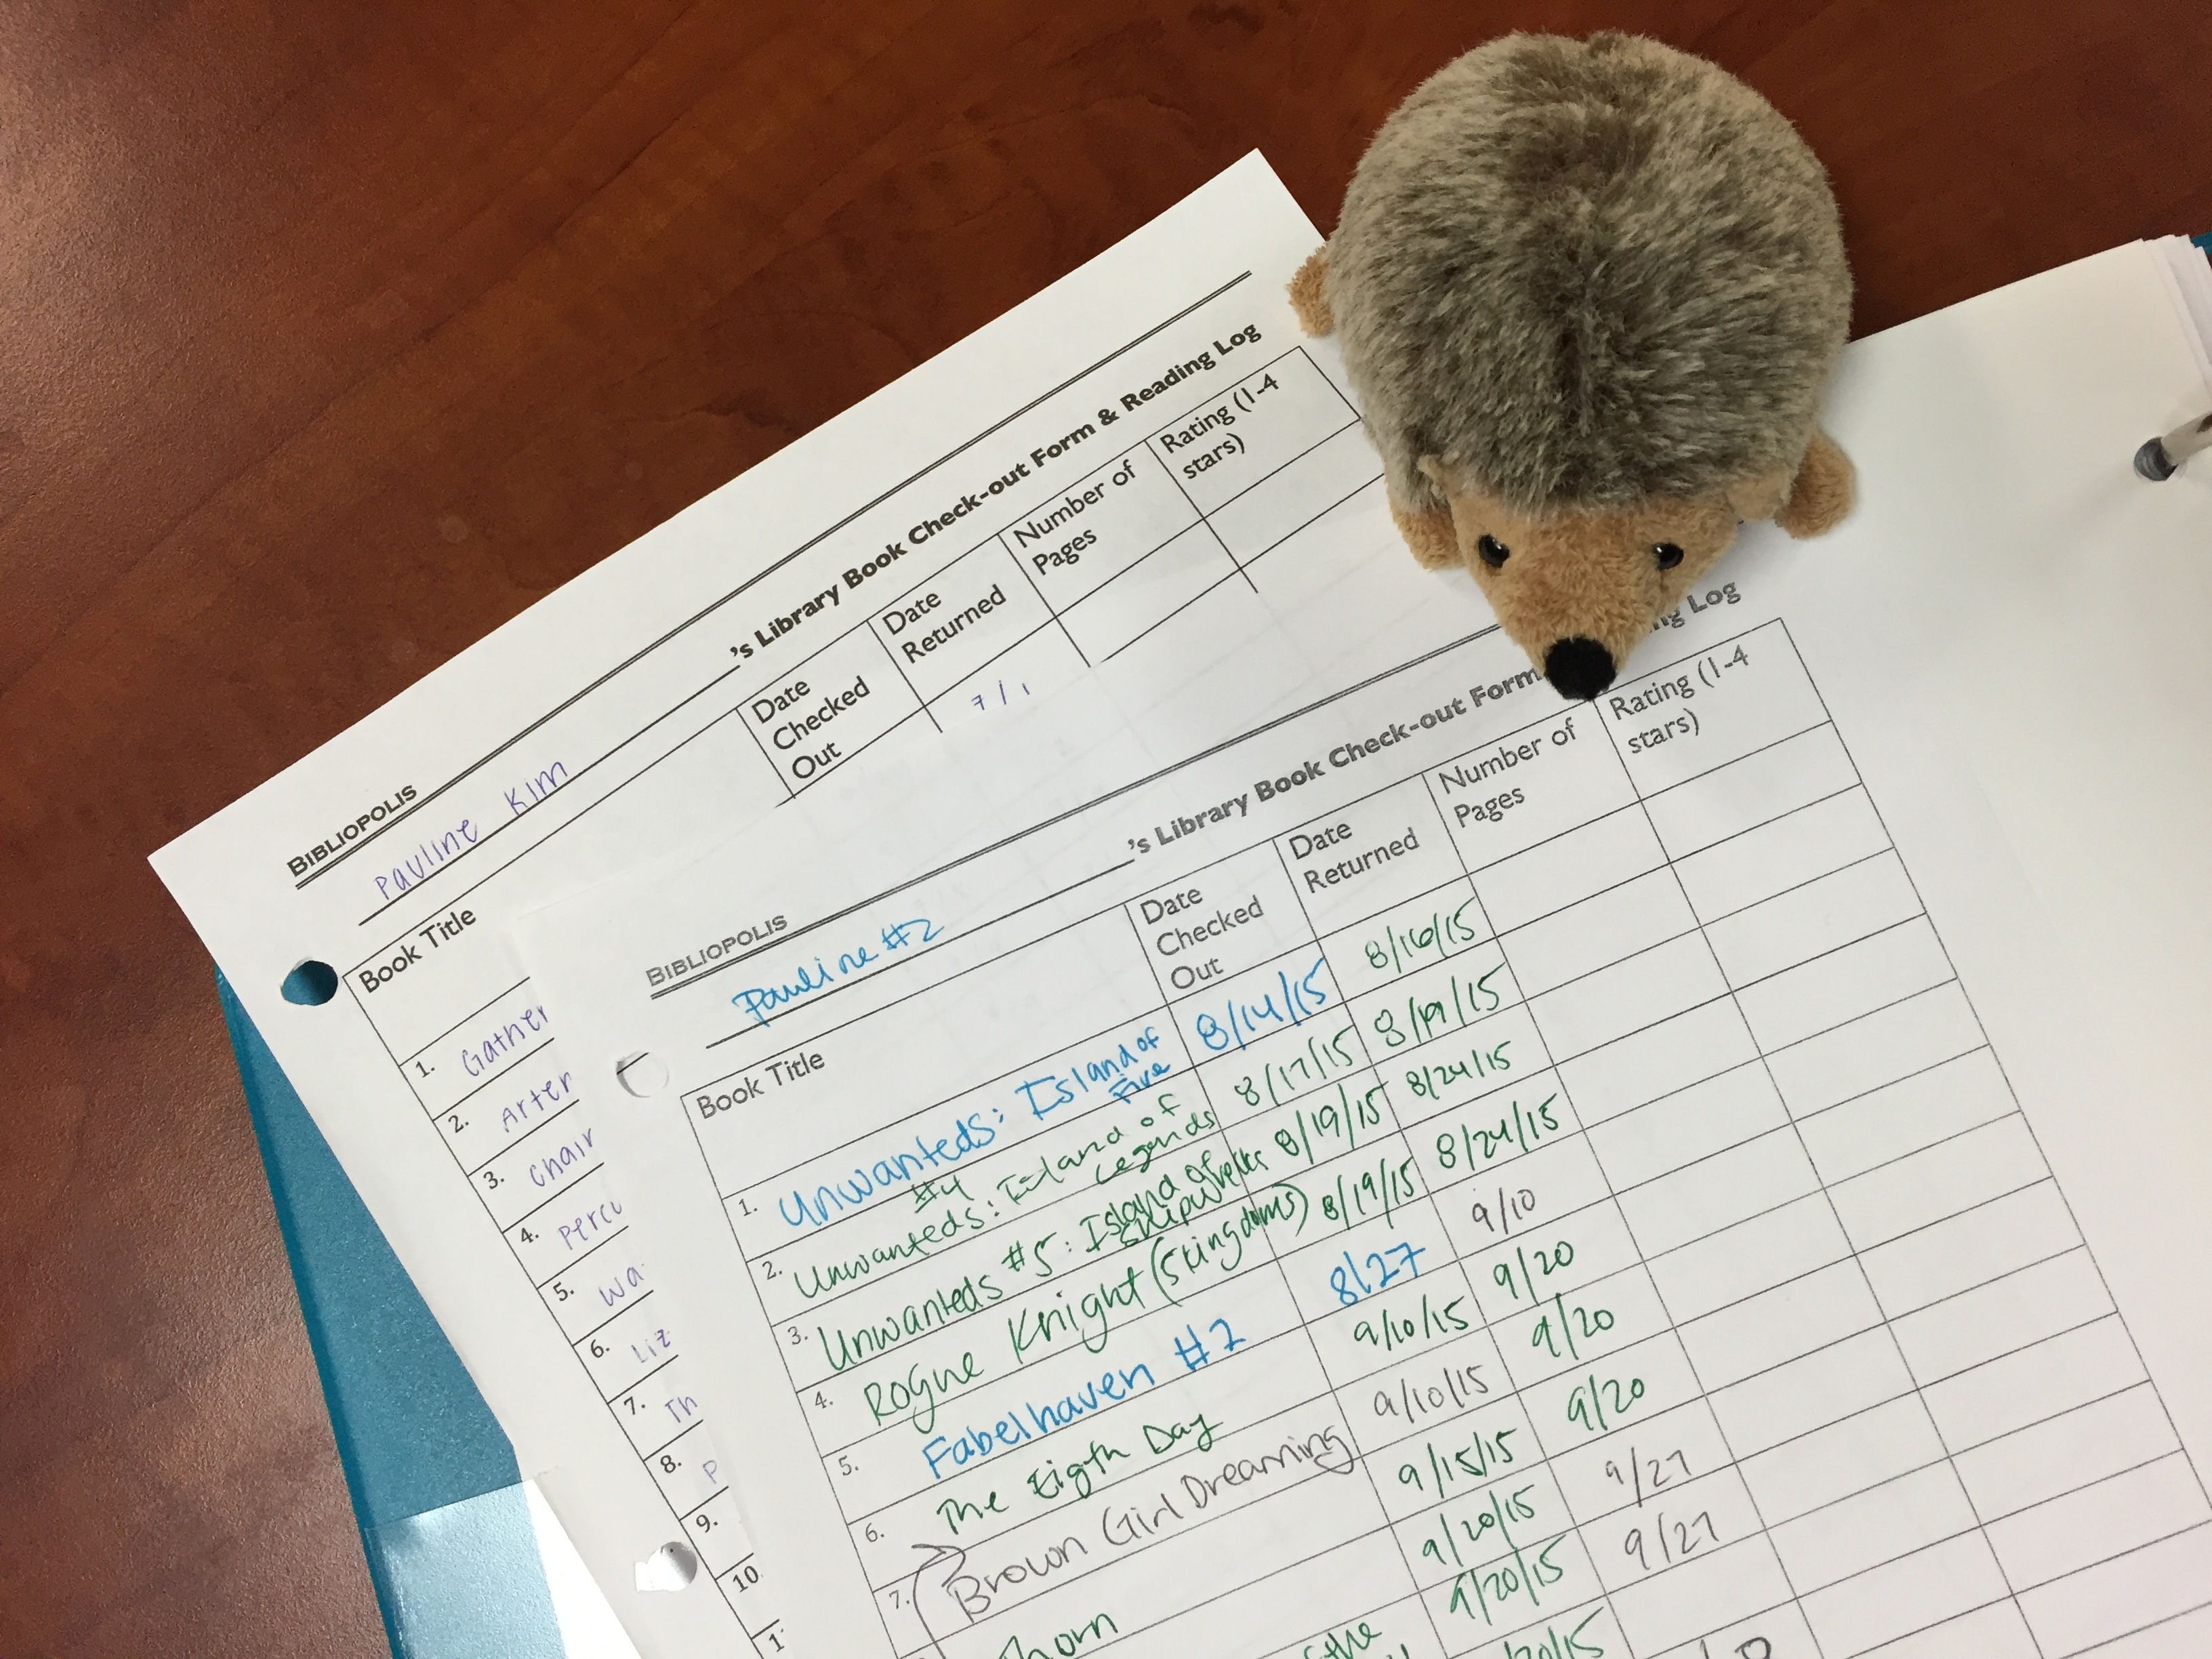 BIBLIOPOLIS
Pauline Kim 's Library Book Check-out Form & Reading Log
Book Title Date Checked Out Date Returned Number of Pages Rating (1-4 stars)
7/1
1. Gather
2.
3. Chair
4.
5.
6.
7.
8.
9.
10
BIBLIOPOLIS
Pauline #2 's Library Book Check-out Form Log
Book Title Date Checked Out Date Returned Number of Pages Rating (1-4 stars)
1. Unwanteds: Island of Fire 8/14/15 8/16/15
2. Unwanteds: #4 Island of Legends 8/17/15 8/19/15
3. Unwanteds #5: Island of Shipwrecks 8/19/15 8/24/15
4. Rogue Knight (5 kingdoms) 8/19/15 8/24/15
5. Fabelhaven #2 8/27 9/10
6. The Eigth Day 9/10/15 9/20
7. Brown Girl Dreaming 9/10/15 9/20
Thorn 9/15/15 9/20
of the 9/20/15 9/27
9/20/15 9/27